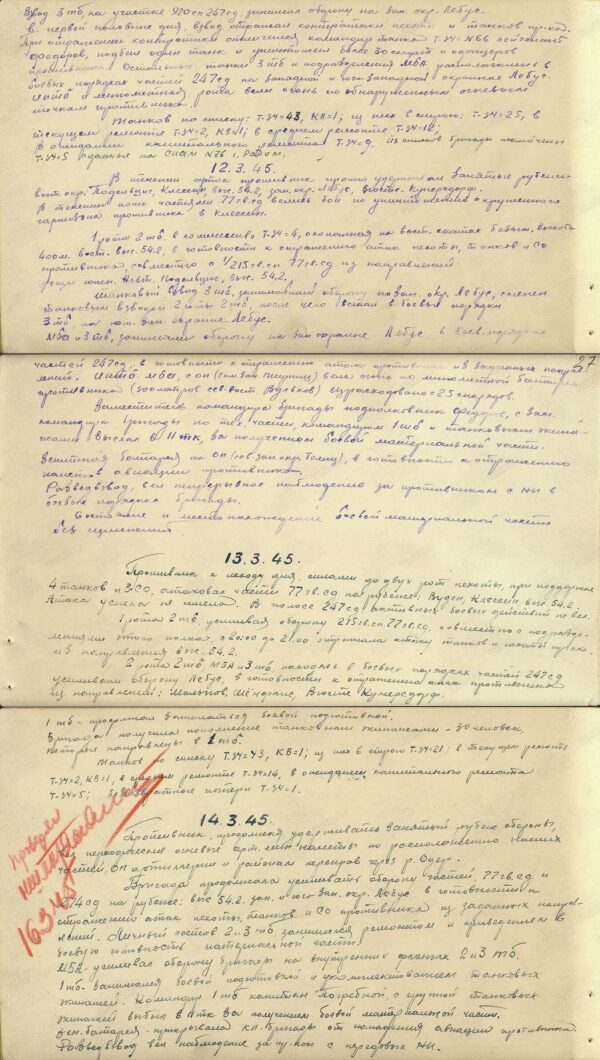 Взвод 3 тб на участке 920 сп 247 сд занимал оборону на зап. окр. Лебус.
В первой половине дня, взвод отражал контратаки пехоты и танков пр-ка.
При отражении контратаки отличился командир танка Т-34 №66 лейтенант
Федоров, подбил один танк и уничтожил более 30 солдат и офицеров
противника. Остальные танки 3 тб и подразделения МБА располагались в
боевых порядках частей 247 сд на западной и юго-западной окраинах Лебус.
ИПТБ и минометная рота вели огонь по обнаруженным огневым
точкам противника.
Танков по списку: Т-34=43, КВ=1; из них в строю: Т-34=25, в
текущем ремонте Т-34=2, КВ=1; в среднем ремонте Т-34=12;
В ожидании капитального ремонта Т-34=9. Из списков бригады исключены
Т-34=5 сданные на СПАМ №26 г. Радом.
12.3.45.
В течении суток противник прочно удерживал занятые рубежи
вост. окр. Подельциг, Клессин, выс. 54.2, зап. окр. Лебус, Вюсте-Кунерсдорф.
В течении ночи частями 77 гв. сд велись бои по уничтожению окруженного
гарнизона противника в Клессин.
1 рота 2 тб, в количестве Т-34=4, окопанная на вост. скатах безым. высоты
400 м. вост. выс. 54.2, в готовности к отражению атак пехоты, танков и СО
противника, совместно с 1/215 гв. сп 77 гв. сд из направлений:
роща южн. Альт. Подельциг, выс. 54.2.
Танковый взвод 3 тб, занимавший оборону на зап. окр. Лебус, сменен
танковым взводом 2 роты 2 тб, после чего встал в боевые порядки
3 тб на юго-зап. окраине Лебус.
МБА и 3 тб, занимали оборону на зап. окраине Лебус в боев. порядках
27
частей 247 сд, в готовности к отражению атак противника из заданных направ-
лений. ИПТБ МБА, с ОП вела огонь по минометной батарее
противника (300 метров сев.-вост. Вулков) израсходовано=25 снарядов.
Заместитель командира бригады подполковник Федоров, с зам.
командира бригады по тех. части, командиром 1 тб и танковыми экипа-
жами выслан в 11 тк, за получением боевой материальной части.
Зенитная батарея на ОП, в готовности к отражению
налетов авиации противника.
Разведвзвод, вел непрерывное наблюдение за противником с НП в
боевых порядках бригады.
Состояние и местонахождение боевой материальной части
без изменений.
13.3.45.
Противник к исходу дня силами до двух рот пехоты, при поддержке
4 танков и 3 СО, атаковал части 77 гв. сд на рубеже: Вуден, Клессин, выс. 54.2.
Атака успеха не имела. В полосе 247 сд активных боевых действий не вел.
1 рота 2 тб, усиливая оборону 215 гв. сп 77 гв. сд, совместно с подразде-
лениями этого полка, с 20.00 до 21.00 отражала атаку танков и пехоты пр-ка
из направления выс. 54.2.
2 рота 2 тб МБА и 3 тб, находясь в боевых порядках частей 247 сд
усиливали оборону Лебус, в готовности к отражению атак противника
из направлений: Мальнов, Шёнфлис, Вюсте Кунерсдорф.
1 тб - продолжал заниматься боевой подготовкой.
Бригада получила пополнение танковыми экипажами - 30 человек,
которые направлены в 1 тб.
Танков по списку Т-34=43, КВ=1; из них в строю Т-34=21; в текущем ремонте
Т-34=2, КВ=1, в среднем ремонте Т-34=14, в ожидании капитального ремонта
Т-34=5; безвозвратные потери Т-34=1.
14.3.45.
Противник, продолжая удерживать занятый рубеж обороны,
вел периодические огневые арт. мин. налеты по расположению наших
частей, ОП артиллерии и районам переправ через р. Одер.
Бригада продолжала усиливать оборону частей 77 гв. сд и
274 сд на рубеже: выс 54.2. зап. и юго-зап. окр. Лебус в готовности к
отражению атак пехоты, танков и СО противника из заданных направ-
лений. Личный состав 2 и 3 тб, занимался ремонтом и приведением в
боевую готовность материальной части.
МБА - усиливал оборону бригады на внутренних флангах 2 и 3 тб.
1 тб - занимался боевой подготовкой и укомплектованием танковых
экипажей. Командир 1 тб капитан Погребной, с группой танковых
экипажей выбыл в 11 тк за получением боевой материальной части.
Зен. батарея - прикрывала кп. бригады от нападения авиации противника.
Разведвзвод вел наблюдение за пр-ком с передовых НП.
16.3.45